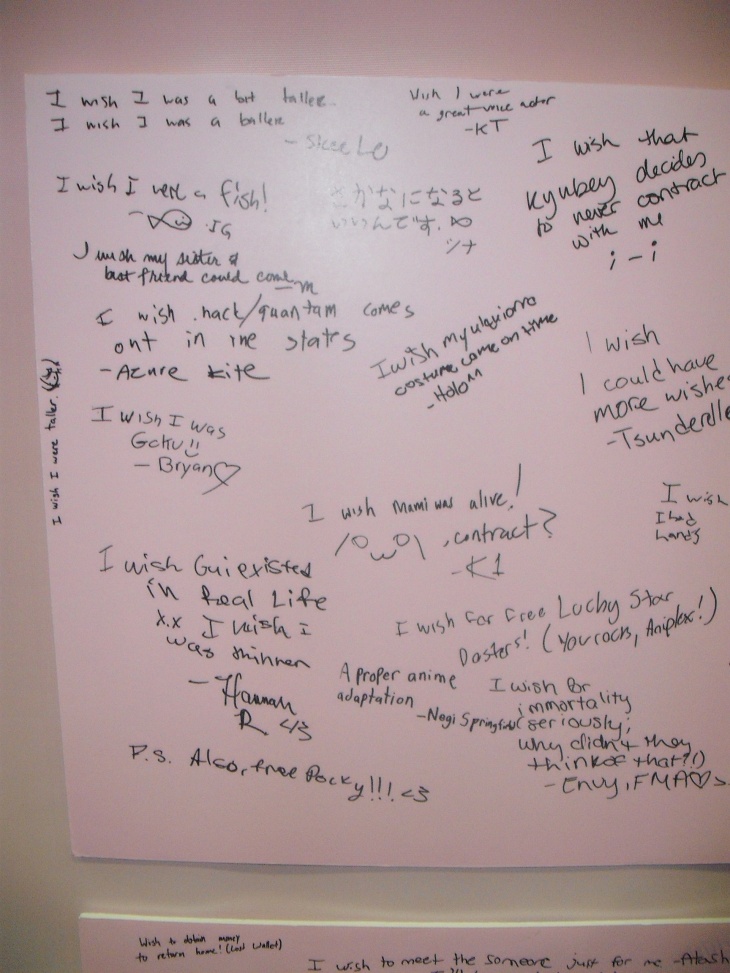 I wish I was a bit taller
I wish I was a baller
- Skee Lo
Wish I were
a great voice actor
-KT
I wish that
Kyubey decides
to never contract
with me
; - ;
I wish I were a fish!
- JG
さかなになると
いいんです。
I wish my sister &
best friend could come
- m
I wish .hack/quantam comes
out in the states
- Azure kite
I wish my
costume came on time
- Holo^^
I wish
I could have
more wishes
- Tsundere
I wish I were taller.
I wish I was
Goku!!
- Bryan♡
I wish Mami was alive!
/OwO\ , contract?
- K1
I wish
I had
hands
I wish Gui existed
in Real Life
x.x I wish I
was thinner
- Hannah
R <3
P.S. Also, free Pocky!!! <3
I wish for free Lucky Star
Posters! (You rock, Aniplex!)
A proper anime
adaptation
- Negi Springfield
I wish for
immortality
(seriously,
why didn't they
think of that?!)
- Envy, FMA♡
Wish to obtain money
to return home! (Lost Wallet)
I wish to meet the someone just for me -